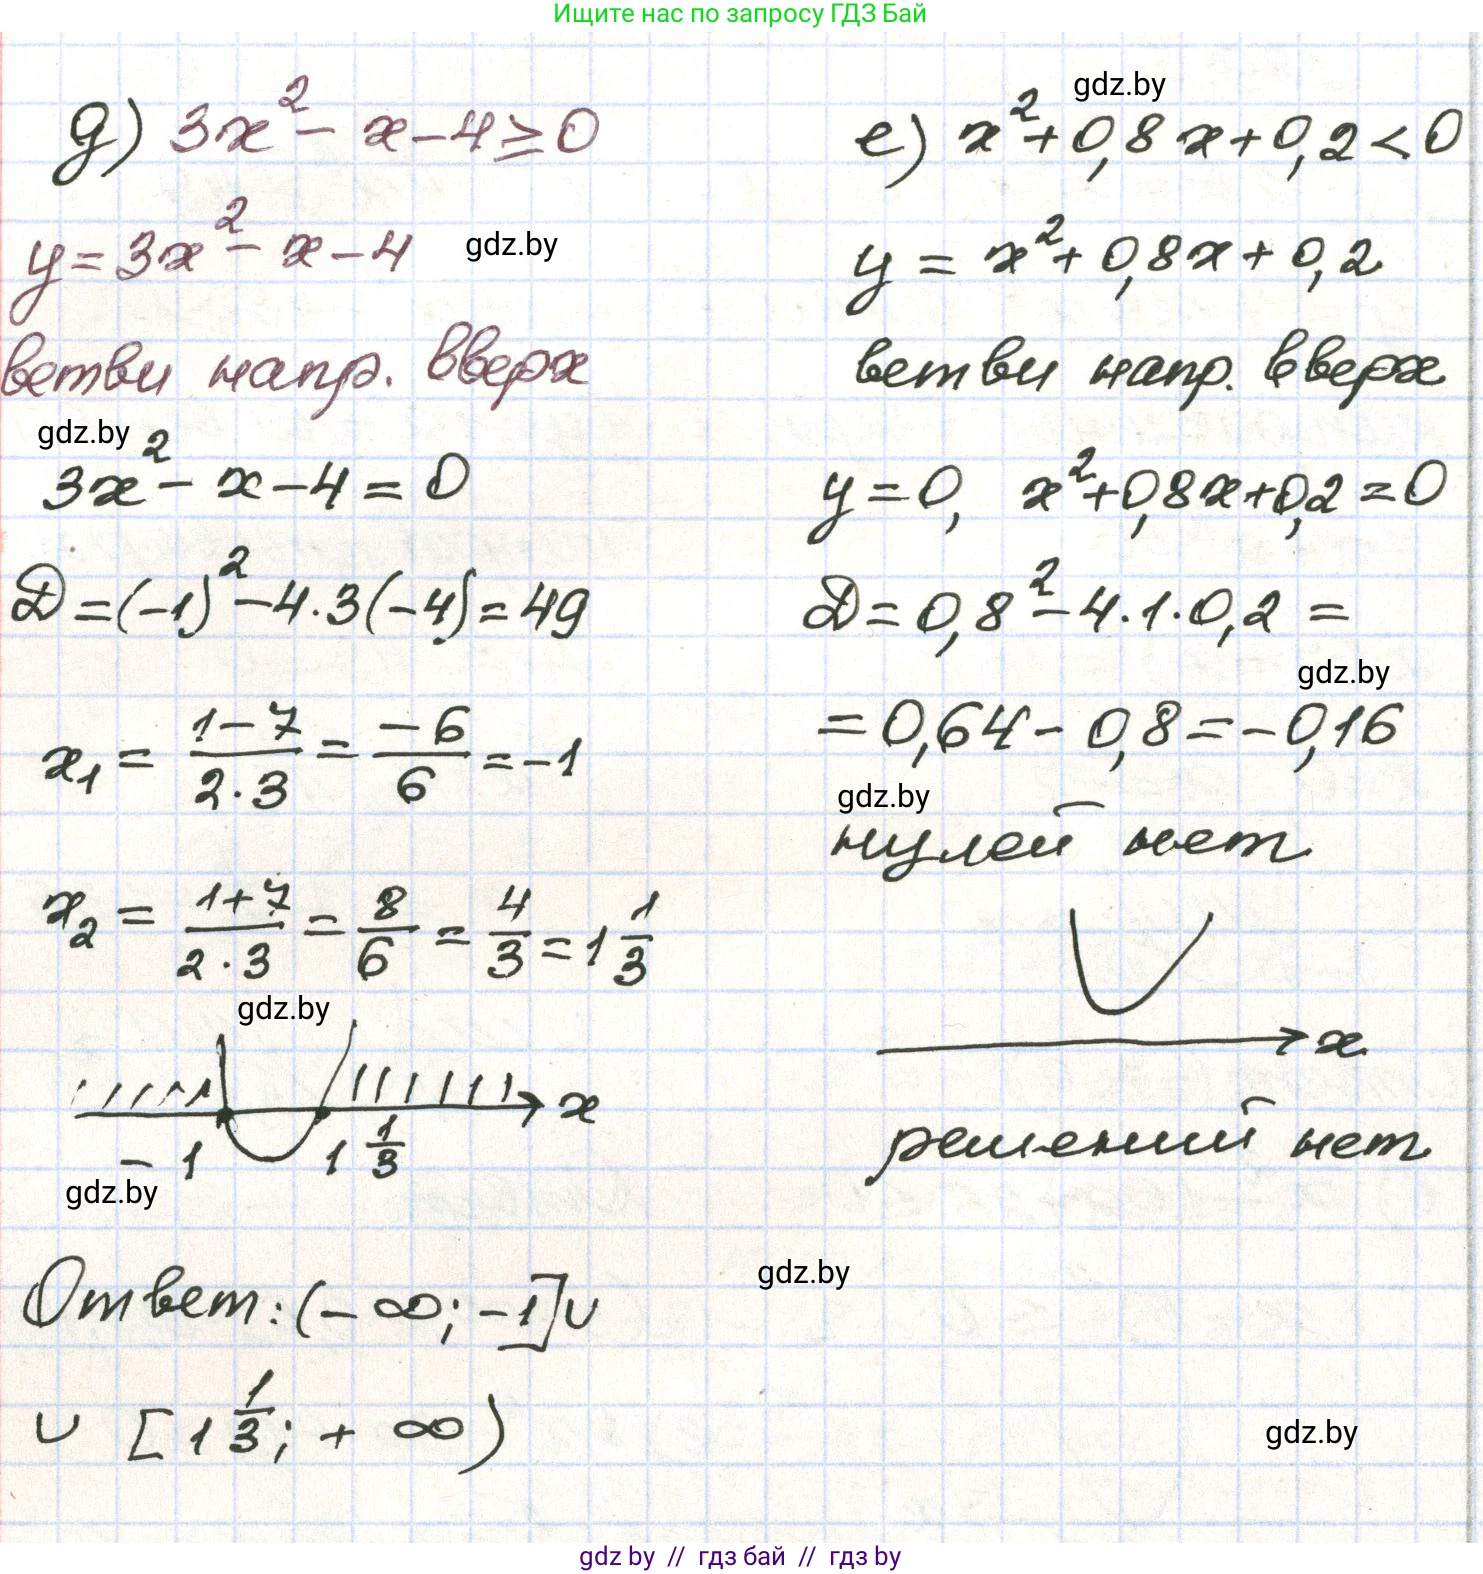 Ищите нас по запросу ГДЗ Бай
д) 3x² - x - 4 ≥ 0
y = 3x² - x - 4
gdz.by
ветви напр. вверх
gdz.by
3x² - x - 4 = 0
D = (-1)² - 4 · 3 (-4) = 49
x₁ = (1 - 7)/(2 · 3) = (-6)/6 = -1
x₂ = (1 + 7)/(2 · 3) = 8/6 = 4/3 = 1 1/3
gdz.by
x
-1 1 1/3
gdz.by
Ответ: (-∞; -1] ∪
∪ [1 1/3; +∞)
gdz.by
е) x² + 0,8x + 0,2 < 0
y = x² + 0,8x + 0,2
ветви напр. вверх
y = 0, x² + 0,8x + 0,2 = 0
D = 0,8² - 4 · 1 · 0,2 =
gdz.by
= 0,64 - 0,8 = -0,16
gdz.by
нулей нет
x
решений нет
gdz.by
gdz.by
gdz by // гдз бай // гдз by